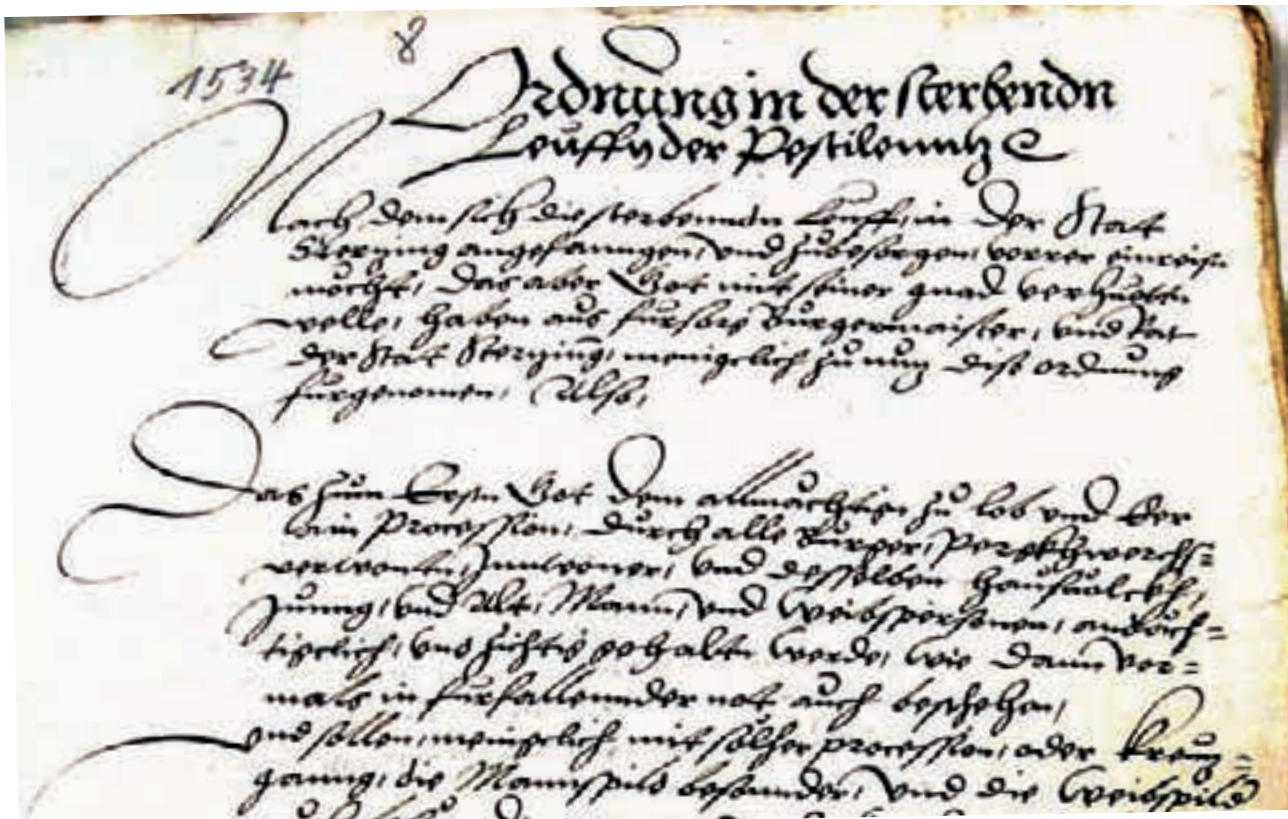 8
1534
Ordnung in der sterbendn
Leuffn der Pestilenntz
Nach dem sich die sterbenndn leuff, in der Stat
Sterzing angefanngen, und zubesorgen, verrer einreisn
möcht, Das aber Got mit seiner gnad verhuetten
welle, haben aus fursorg Burgermaister, und Rat
der Stat Sterzing, menigelich zu nutz dise ordnung
furgenomen, Also,
Das zum Ersten Got dem allmächtigen zu lob und Eer
ain Procession, durch alle Burger, Perckhwerchs=
verwonten, Innwoner, und desselben hausvolckh,
Jung, und Alt, Mann, und Weibspersonen, andäch=
tigclich, und zichtig gehalten werde, wie dann vor=
mals in furfallennder not auch beschehen,
und sollen, menigclich mit solher procession, oder kreutz=
ganng, die Mannspild besonnder, und die Weibspild